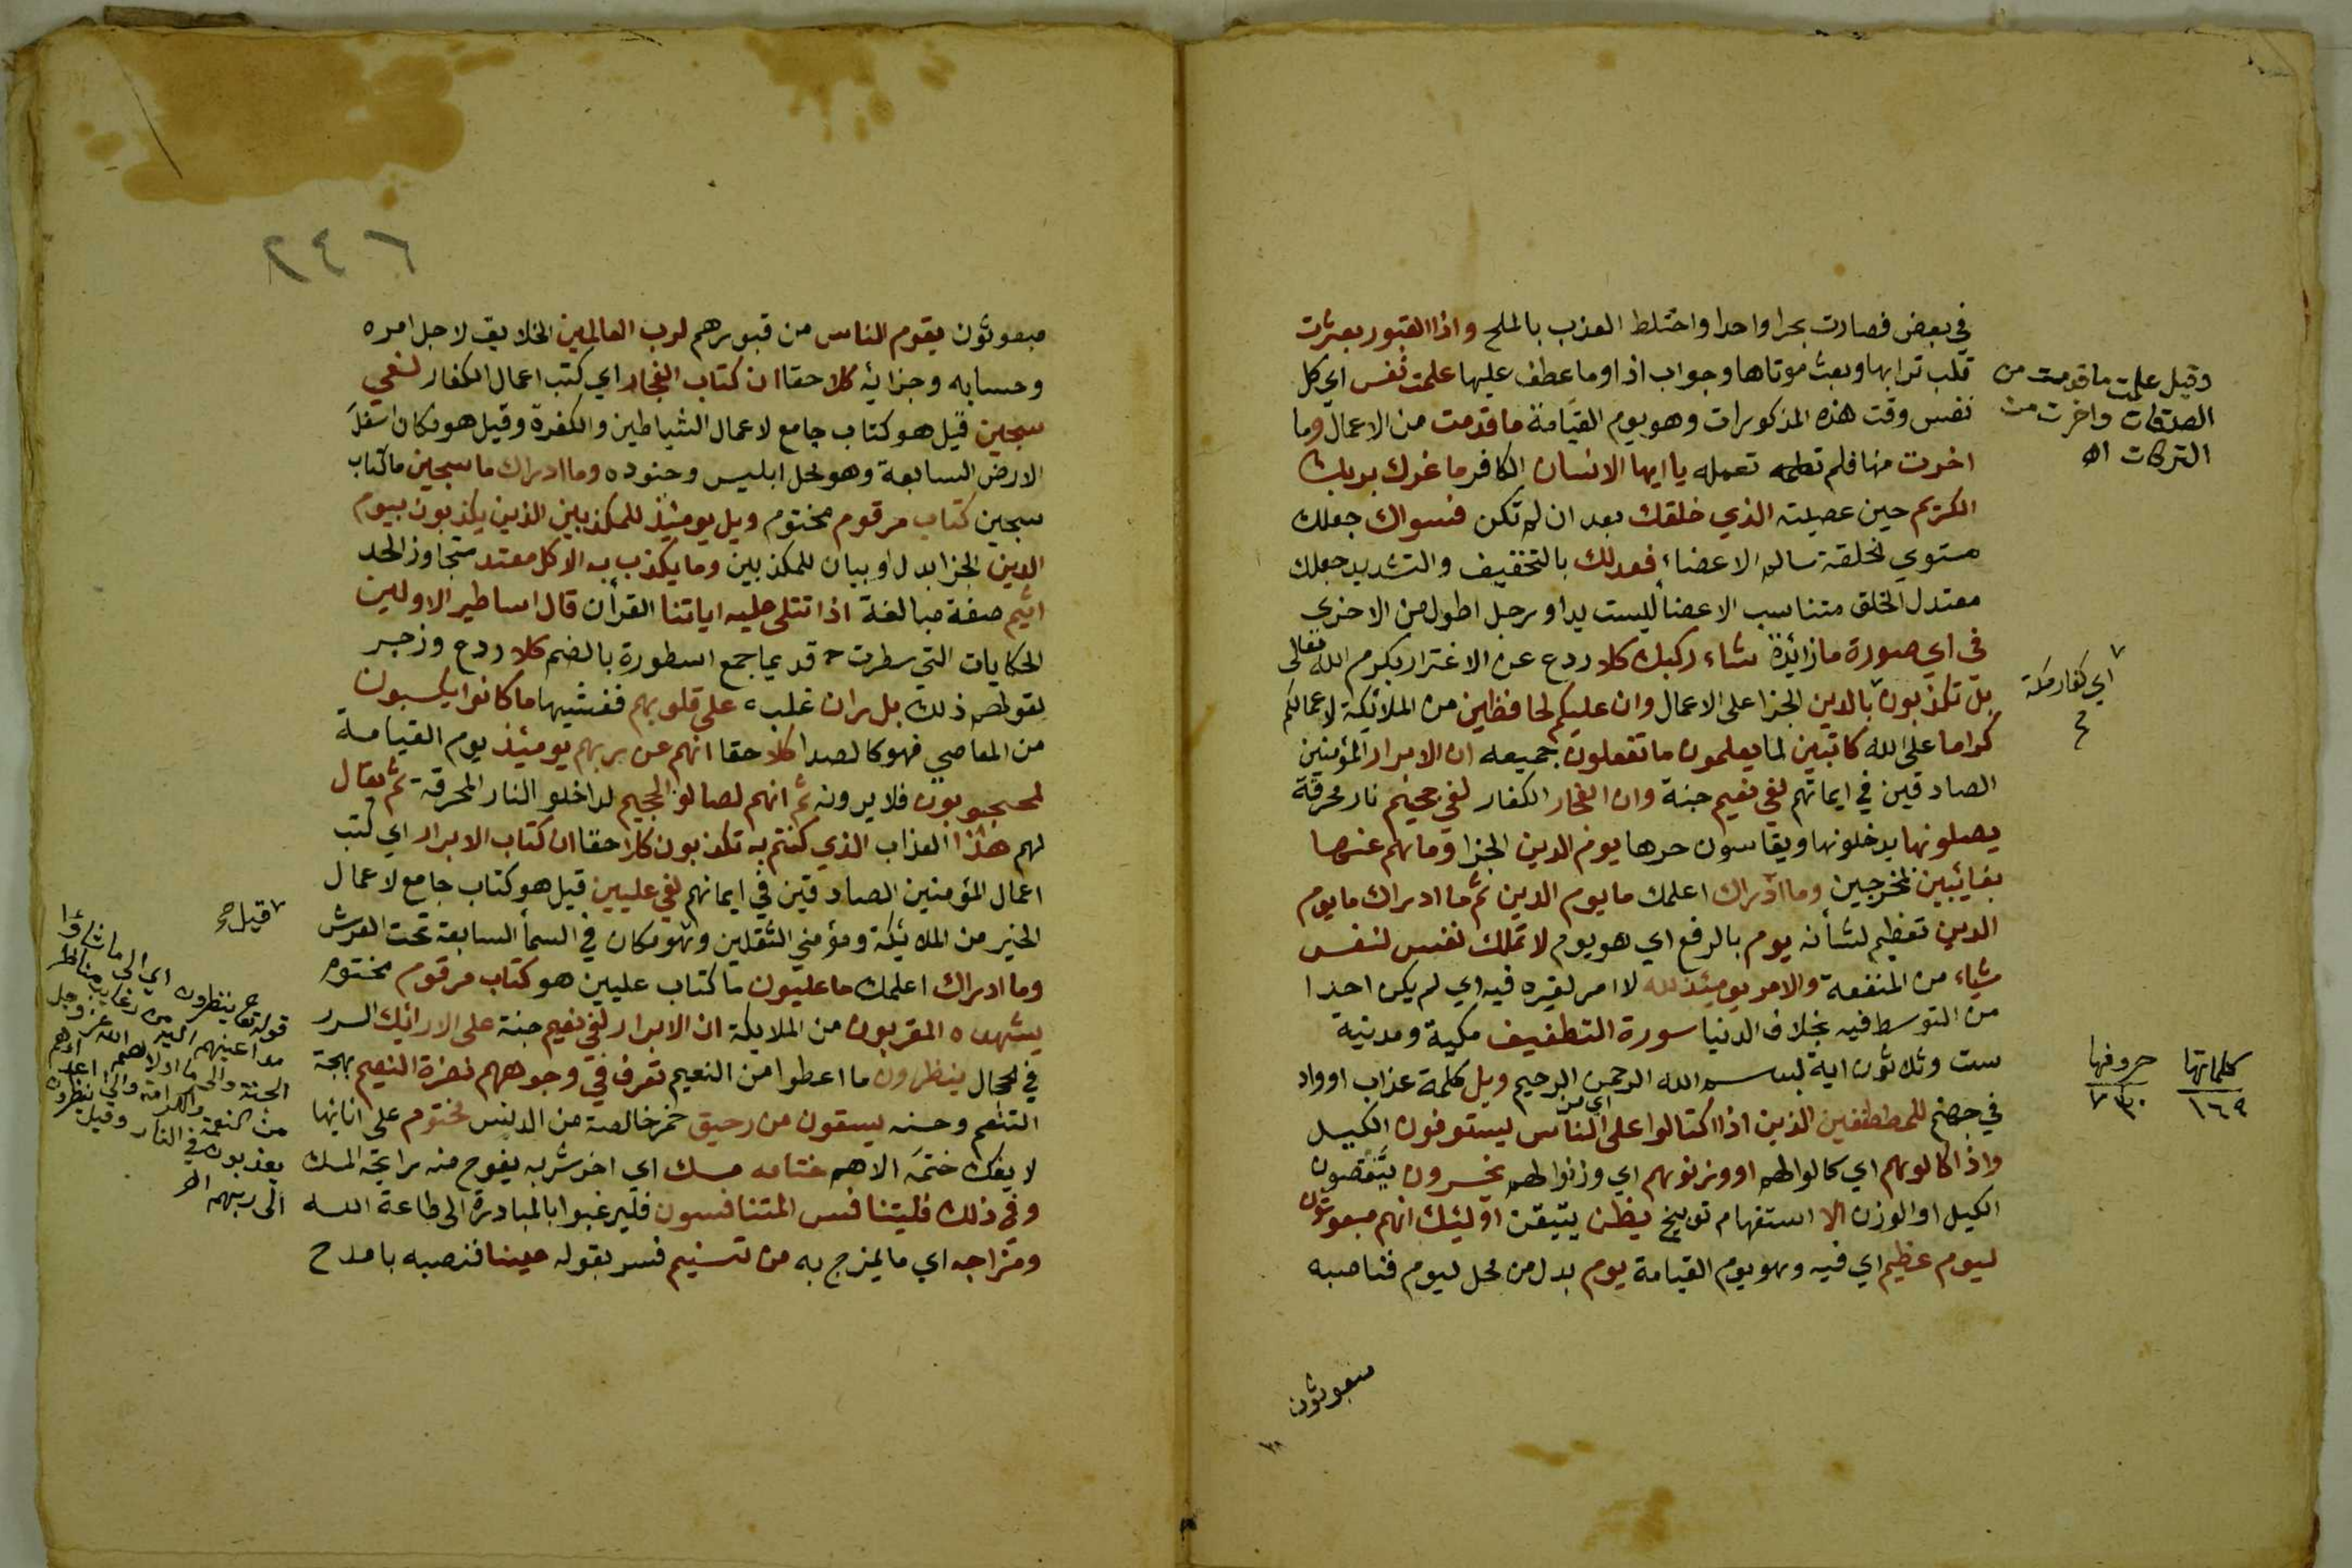 في بعض فصارت بحرا واحدا واختلط العذب بالملح واذا القبور بعثرت
قلب ترابها وبعث موتاها وجواب اذا وما عطف عليها علمت نفس اي كل
نفس وقت هذه المذكورات وهو يوم القيامة ما قدمت من الاعمال وما
اخرت منها فلم تعمله يا ايها الانسان الكافر ما غرك بربك
الكريم حين عصيته الذي خلقك بعد ان لم تكن فسواك جعلك
مستوي الخلقة سالم الاعضاء فعدلك بالتخفيف والتشديد جعلك
معتدل الخلق متناسب الاعضأ ليست يد او رجل اطول من الاخرى
في اي صورة ما زائدة شاء ركبك كلا ردع عن الاغترار بكرم الله تعالى
بل تكذبون بالدين الجزا على الاعمال وان عليكم لحافظين من الملائكة لاعمالكم
كراما على الله كاتبين لها يعلمون ما تفعلون جميعه ان الابرار المؤمنين
الصادقين في ايمانهم لفي نعيم جنة وان الفجار الكفار لفي جحيم نار محرقة
يصلونها يدخلونها ويقاسون حرها يوم الدين الجزا وما هم عنها
بغايئبين بمخرجين وما ادراك اعلمك ما يوم الدين ثم ما ادراك ما يوم
الدين تعظيم لشأنه يوم بالرفع اي هو يوم لا تملك نفس لنفس
شياء من المنفعة والامر يومئذ لله لا امر لغيره فيه اي لم يكن احدا
من التوسط فيه بخلاف الدنيا سورة التطفيف مكية ومدنية
ست وثلاثون اية بسم الله الرحمن الرحيم ويل كلمة عذاب او واد
في جهنم للمطففين الذين اذا اكتالوا على اي من الناس يستوفون الكيل
واذا كالوهم اي كالوا لهم او وزنوهم اي وزنوا لهم يخسرون ينقصون
الكيل او الوزن الا استفهام توبيخ يظن يتيقن اوليئك انهم مبعوثون
ليوم عظيم اي فيه وهو يوم القيامة يوم بدل من محل ليوم فناصبه
مبعوثون
وقيل علمت ما قدمت من
الصدقات واخرت من
التركات اه
اي كفار مكة
كلماتها ١٦٩
حروفها ٧٣٠
٢٤٦
مبعوثون يقوم الناس من قبورهم لرب العالمين الخلايق لاجل امره
وحسابه وجزائه كلا حقا ان كتاب الفجار اي كتب اعمال الكفار لفي
سجين قيل هو كتاب جامع لاعمال الشياطين والكفرة وقيل هو مكان اسفل
الارض السابعة وهو محل ابليس وجنوده وما ادراك ما سجين ما كتاب
سجين كتاب مرقوم مختوم ويل يومئذ للمكذبين الذين يكذبون بيوم
الدين الجزا بدل او بيان للمكذبين وما يكذب به الا كل معتد متجاوز الحد
اثيم صفة مبالغة اذا تتلى عليه اياتنا القرأن قال اساطير الاولين
الحكايات التي سطرت قديما جمع اسطورة بالضم كلا ردع وزجر
لقولهم ذلك بل ران غلب على قلوبهم فغشيها ما كانوا يكسبون
من المعاصي فهو كالصدا كلا حقا انهم عن ربهم يومئذ يوم القيامة
لمحجوبون فلا يرونه ثم انهم لصالوا الجحيم لداخلو النار المحرقة ثم يقال
لهم هذا العذاب الذي كنتم به تكذبون كلا حقا ان كتاب الابرار اي كتب
اعمال المؤمنين الصادقين في ايمانهم لفي عليين قيل هو كتاب جامع لاعمال
الخير من الملائكة ومؤمني الثقلين وهو مكان في السمأ السابعة تحت العرش
وما ادراك اعلمك ما عليون ما كتاب عليين هو كتاب مرقوم مختوم
يشهده المقربون من الملايكة ان الابرار لفي نعيم جنة على الارائيك السرر
في الحجال ينظرون ما اعطوا من النعيم تعرف في وجوههم نضرة النعيم بهجة
التنعم وحسنه يسقون من رحيق خمر خالصة من الدنس مختوم على انائها
لا يفك ختمه الا هم ختامه مسك اي اخر شربه يفوح منه رايحة المسك
وفي ذلك فليتنافس المتنافسون فليرغبوا بالمبادرة الى طاعة الله
ومزاجه اي ما يمزج به من تسنيم فسر بقوله عينا فنصبه بامدح
قيل
قوله ينظرون اي الى ما شاؤا
مد اعينهم اليه من رغايب مناظر
الجنة والى ما اولاهم الله عز وجل
من النعمة والكرامة والى اعدائهم
يعذبون في النار وقيل ينظرون
الى ربهم اه